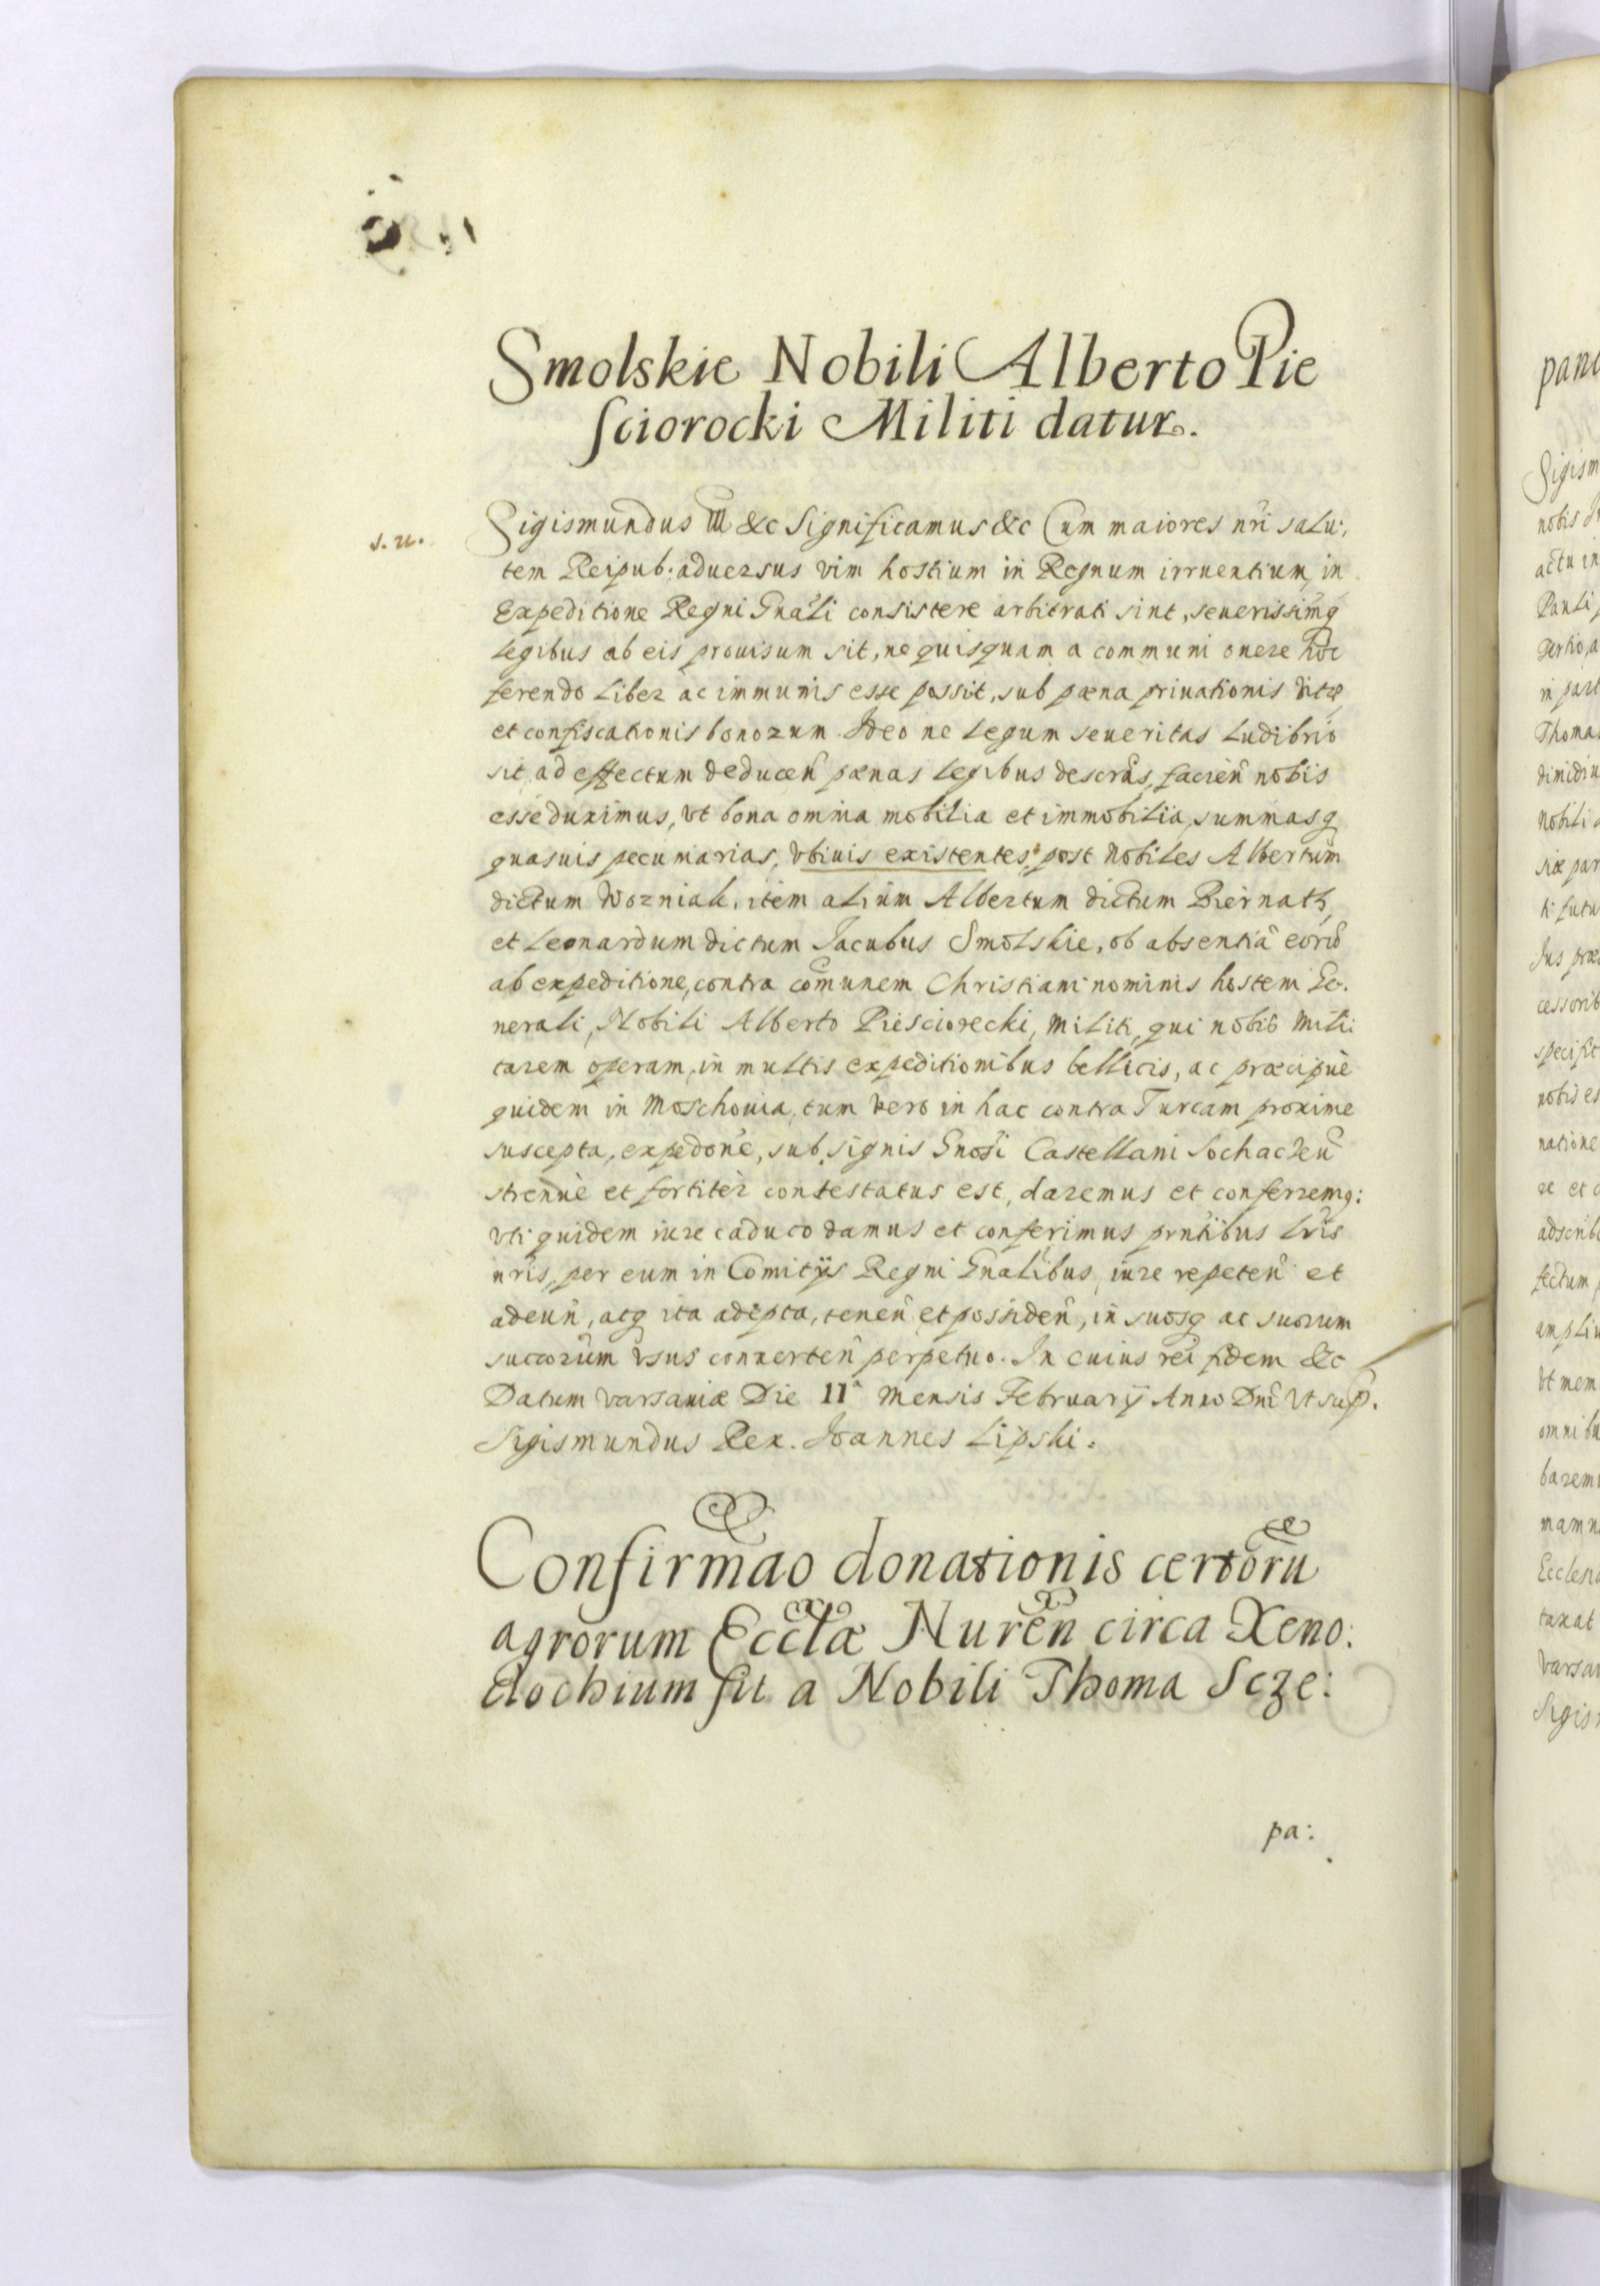 Smolskie Nobili Alberto Pie
sciorocki Militi datur.
s. n.
Sigismundus III &c Significamus &c Cum maiores nri salu:
tem Reipub: aduersus vim hostium in Regnum irruentium, in
Expeditione Regni Gnali consistere arbitrati sint, seuerissimq
legibus ab eis prouisum sit, ne quisquam a communi onere hoc
ferendo liber ac immunis esse possit, sub pæna priuationis vitæ
et confiscationis bonorum. Ideo ne legum seueritas ludibrio
sit, ad effectum deducen pænas legibus descras, facien nobis
esse duximus, vt bona omnia mobilia et immobilia, summasq
quasuis pecuniarias, vbiuis existentes, post Nobiles Albertum
dictum Wozniak, item alium Albertum dictum Biernath,
et Leonardum dictum Jacubus Smolskie, ob absentia eoru
ab expeditione, contra comunem Christiani nominis hostem Ge.
nerali, Nobili Alberto Piesciorecki, Militi, qui nobis Mili:
tarem operam, in multis expeditionibus bellicis, ac præcipuè
quidem in Moschouia, tum vero in hac contra Turcam proxime
suscepta, expedone, sub signis Gnosi Castellani Sochaczeu
strenuè et fortiter contestatus est, daremus et conferremq:
vti quidem iure caduco damus et conferimus prntibus lris
nris, per eum in Comitijs Regni Gnalibus, iure repeten et
adeun, atq ita adepta, tenen et possiden, in suosq ac suorum
succorum vsus conuerten perpetuo. In cuius rei fidem &c
Datum Varsauiæ Die IIa Mensis Februarij Anno Dni Vt sup.
Sigismundus Rex. Joannes Lipski.
Confirmao donationis certoru
agrorum Ecclæ Nuren circa Xeno:
dochium fit a Nobili Thoma Scze:
pa: